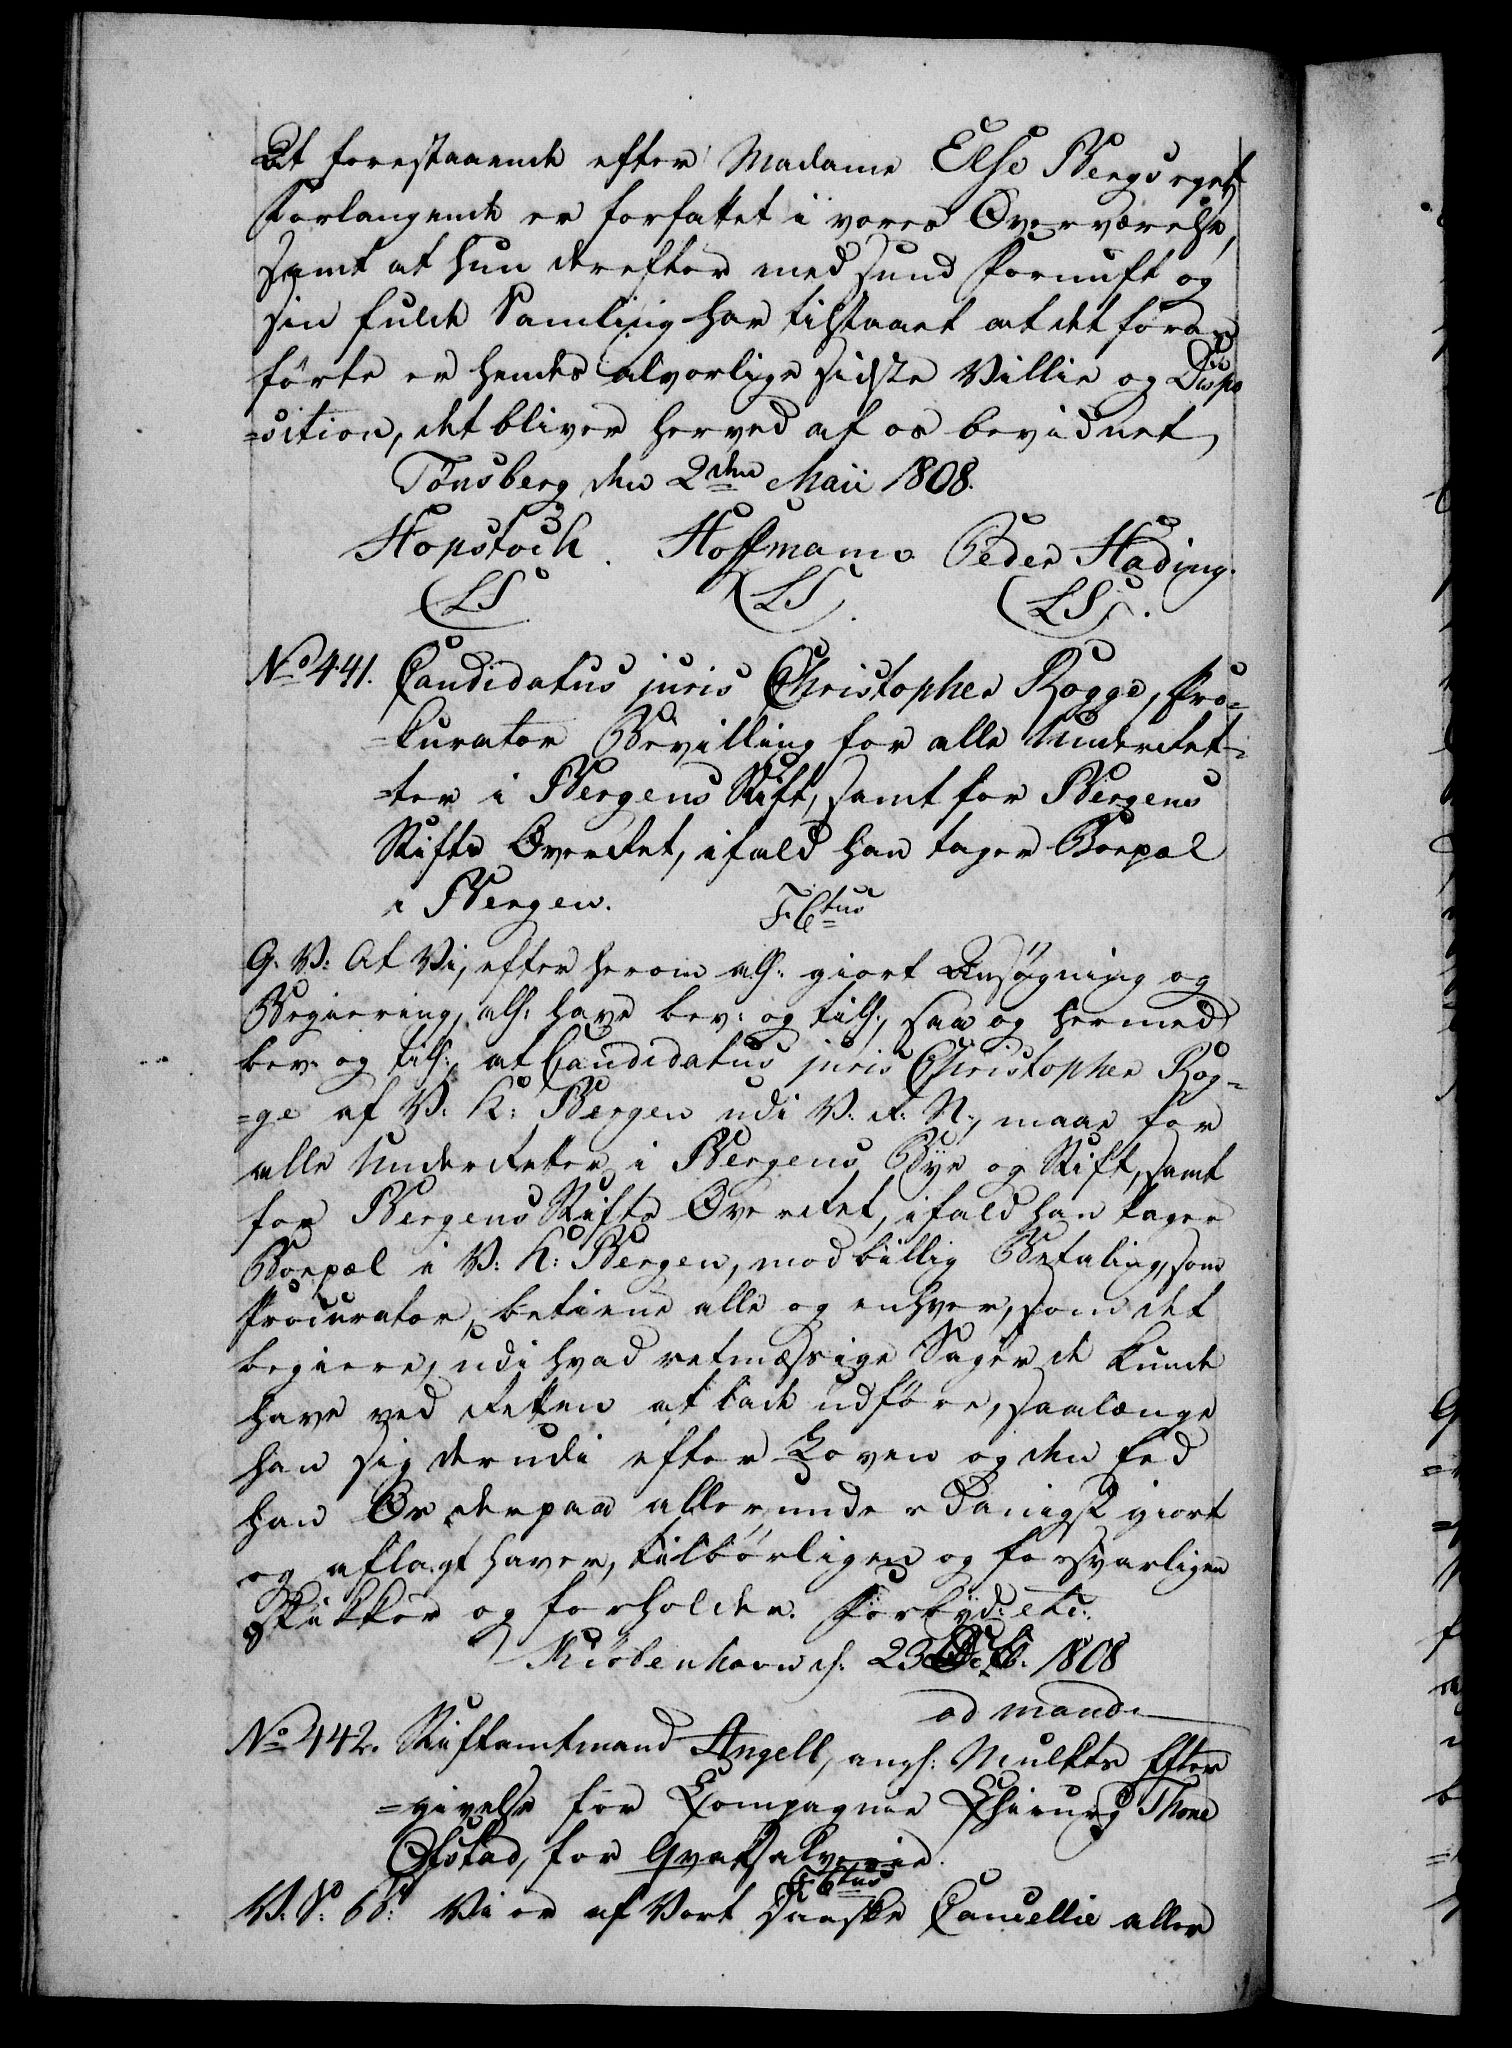 At forestaaende efter Madame Else Bergs eget
Forlangende er forfattet i vores Overværelse,
samt at hun derefter med sund Fornuft og
sin fulde Samling har tilstaaet at det foran
førte er hendes alvorlige sidste Villie og Dispo
=sition, det bliver herved af os bevidnet,
Tønsberg den 2den Maii 1808.
Hopstock. Hoffmann. Peder Hading.
(LS) (LS). (LS).
No 441. Candidatus juris Christopher Rogge, Pro=
=kurator Bevilling for alle Underret=
=ter i Bergens Stift, samt for Bergens
Stifts Overret, ifald han tager Boepæl
i Bergen.
F. 6tus
G. V: At Vi, efter herom all: giort Ansøgning og
Begiering, all: have bev: og till:, saa og hermed
bev: og till:, at Candidatus juris Christopher Rog=
=ge af V: K: Bergen udi V: R: N:, maae for
alle Underretter i Bergens Bye og Stift, samt
for Bergens Stifts Overret, ifald han tager
Boepæl i V: K: Bergen, mod billig Betaling, som
Procurator, betiene alle og enhver, som det
begiere, udi hvad retmæssige Sager de kunde
have ved Retten at lade udføre, saalænge
han sig derudi efter Loven og den Eed
han Os derpaa allerunderdanigst giort
og aflagt haver, tilbørligen og forsvarligen
skikker og forholder. Forbyd: etc:
Kiøbenhavn d: 23 Decb. 1808
ad mand.
No 442. Stiftamtmand Angell, angl: Mulkts Efter
=givelse for Compagnie Chirurg Thone
Ofstad, for Qvaksalverie.
F. 6tus
V: S: G: Vi er af Vort danske Cancellie aller